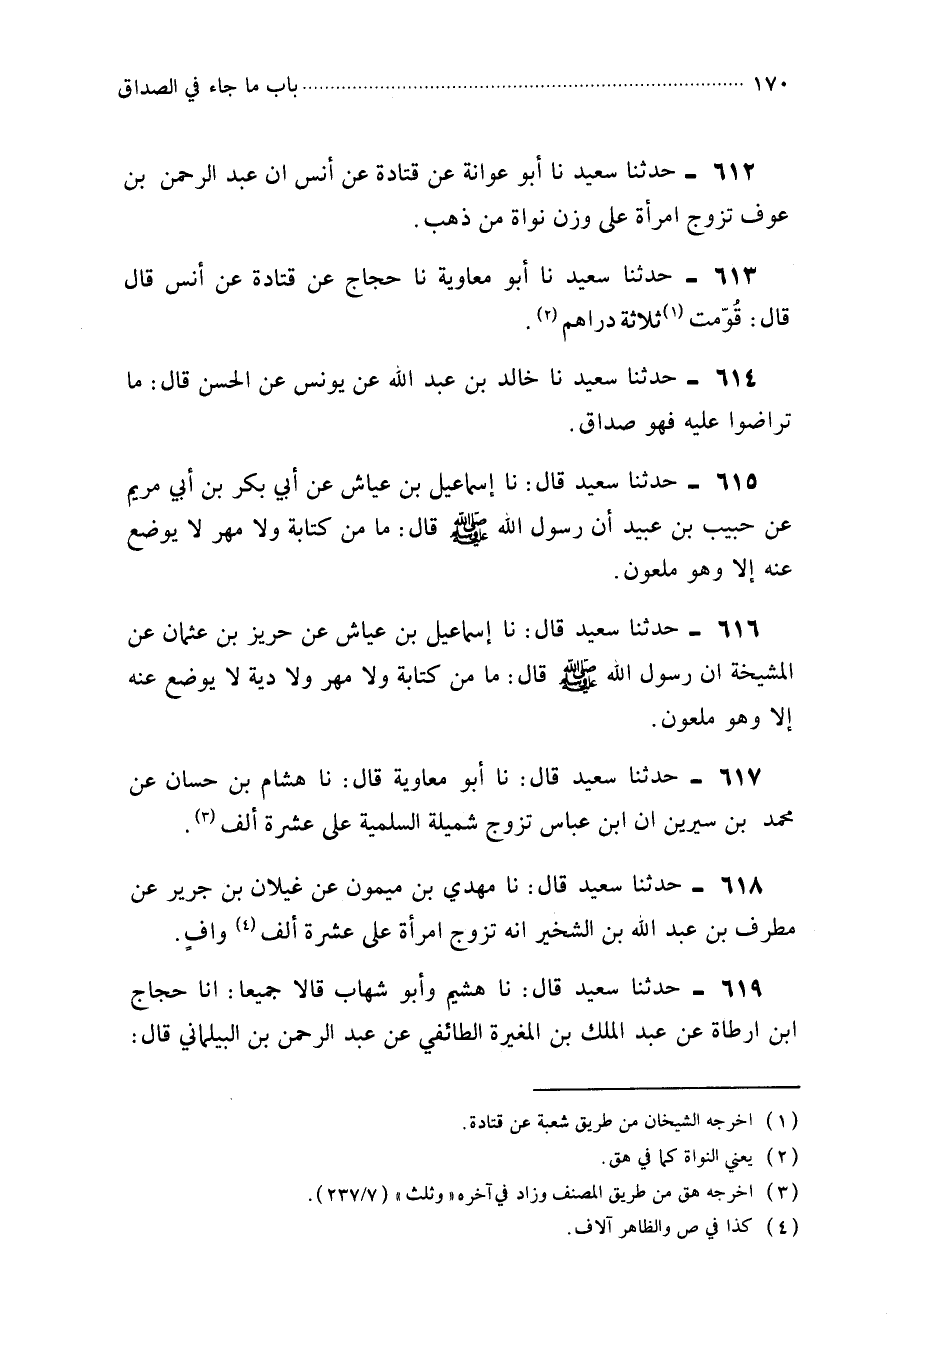 ١٧٠ ........ باب ما جاء في الصداق
٦١٢ ـ حدثنا سعيد نا أبو عوانة عن قتادة عن أنس ان عبد الرحمن بن
عوف تزوج امرأة على وزن نواة من ذهب .
٦١٣ ـ حدثنا سعيد نا أبو معاوية نا حجاج عن قتادة عن أنس قال
قال : قُوّمت (١) ثلاثة دراهم (٢) .
٦١٤ ـ حدثنا سعيد نا خالد بن عبد الله عن يونس عن الحسن قال : ما
تراضوا عليه فهو صداق .
٦١٥ ـ حدثنا سعيد قال : نا إسماعيل بن عياش عن أبي بكر بن أبي مريم
عن حبيب بن عبيد أن رسول الله ﷺ قال : ما من كتابة ولا مهر لا يوضع
عنه إلا وهو ملعون .
٦١٦ ـ حدثنا سعيد قال : نا إسماعيل بن عياش عن حريز بن عثمان عن
المشيخة ان رسول الله ﷺ قال : ما من كتابة ولا مهر ولا دية لا يوضع عنه
إلا وهو ملعون .
٦١٧ ـ حدثنا سعيد قال : نا أبو معاوية قال : نا هشام بن حسان عن
محمد بن سيرين ان ابن عباس تزوج شميلة السلمية على عشرة ألف (٣) .
٦١٨ ـ حدثنا سعيد قال : نا مهدي بن ميمون عن غيلان بن جرير عن
مطرف بن عبد الله بن الشخير انه تزوج امرأة على عشرة ألف (٤) وافٍ .
٦١٩ ـ حدثنا سعيد قال : نا هشيم وأبو شهاب قالا جميعا : انا حجاج
ابن ارطاة عن عبد الملك بن المغيرة الطائفي عن عبد الرحمن بن البيلماني قال :
(١) اخرجه الشيخان من طريق شعبة عن قتادة .
(٢) يعني النواة كما في هق .
(٣) اخرجه هق من طريق المصنف وزاد في آخره « وثلث » (٢٣٧/٧) .
(٤) كذا في ص والظاهر آلاف .